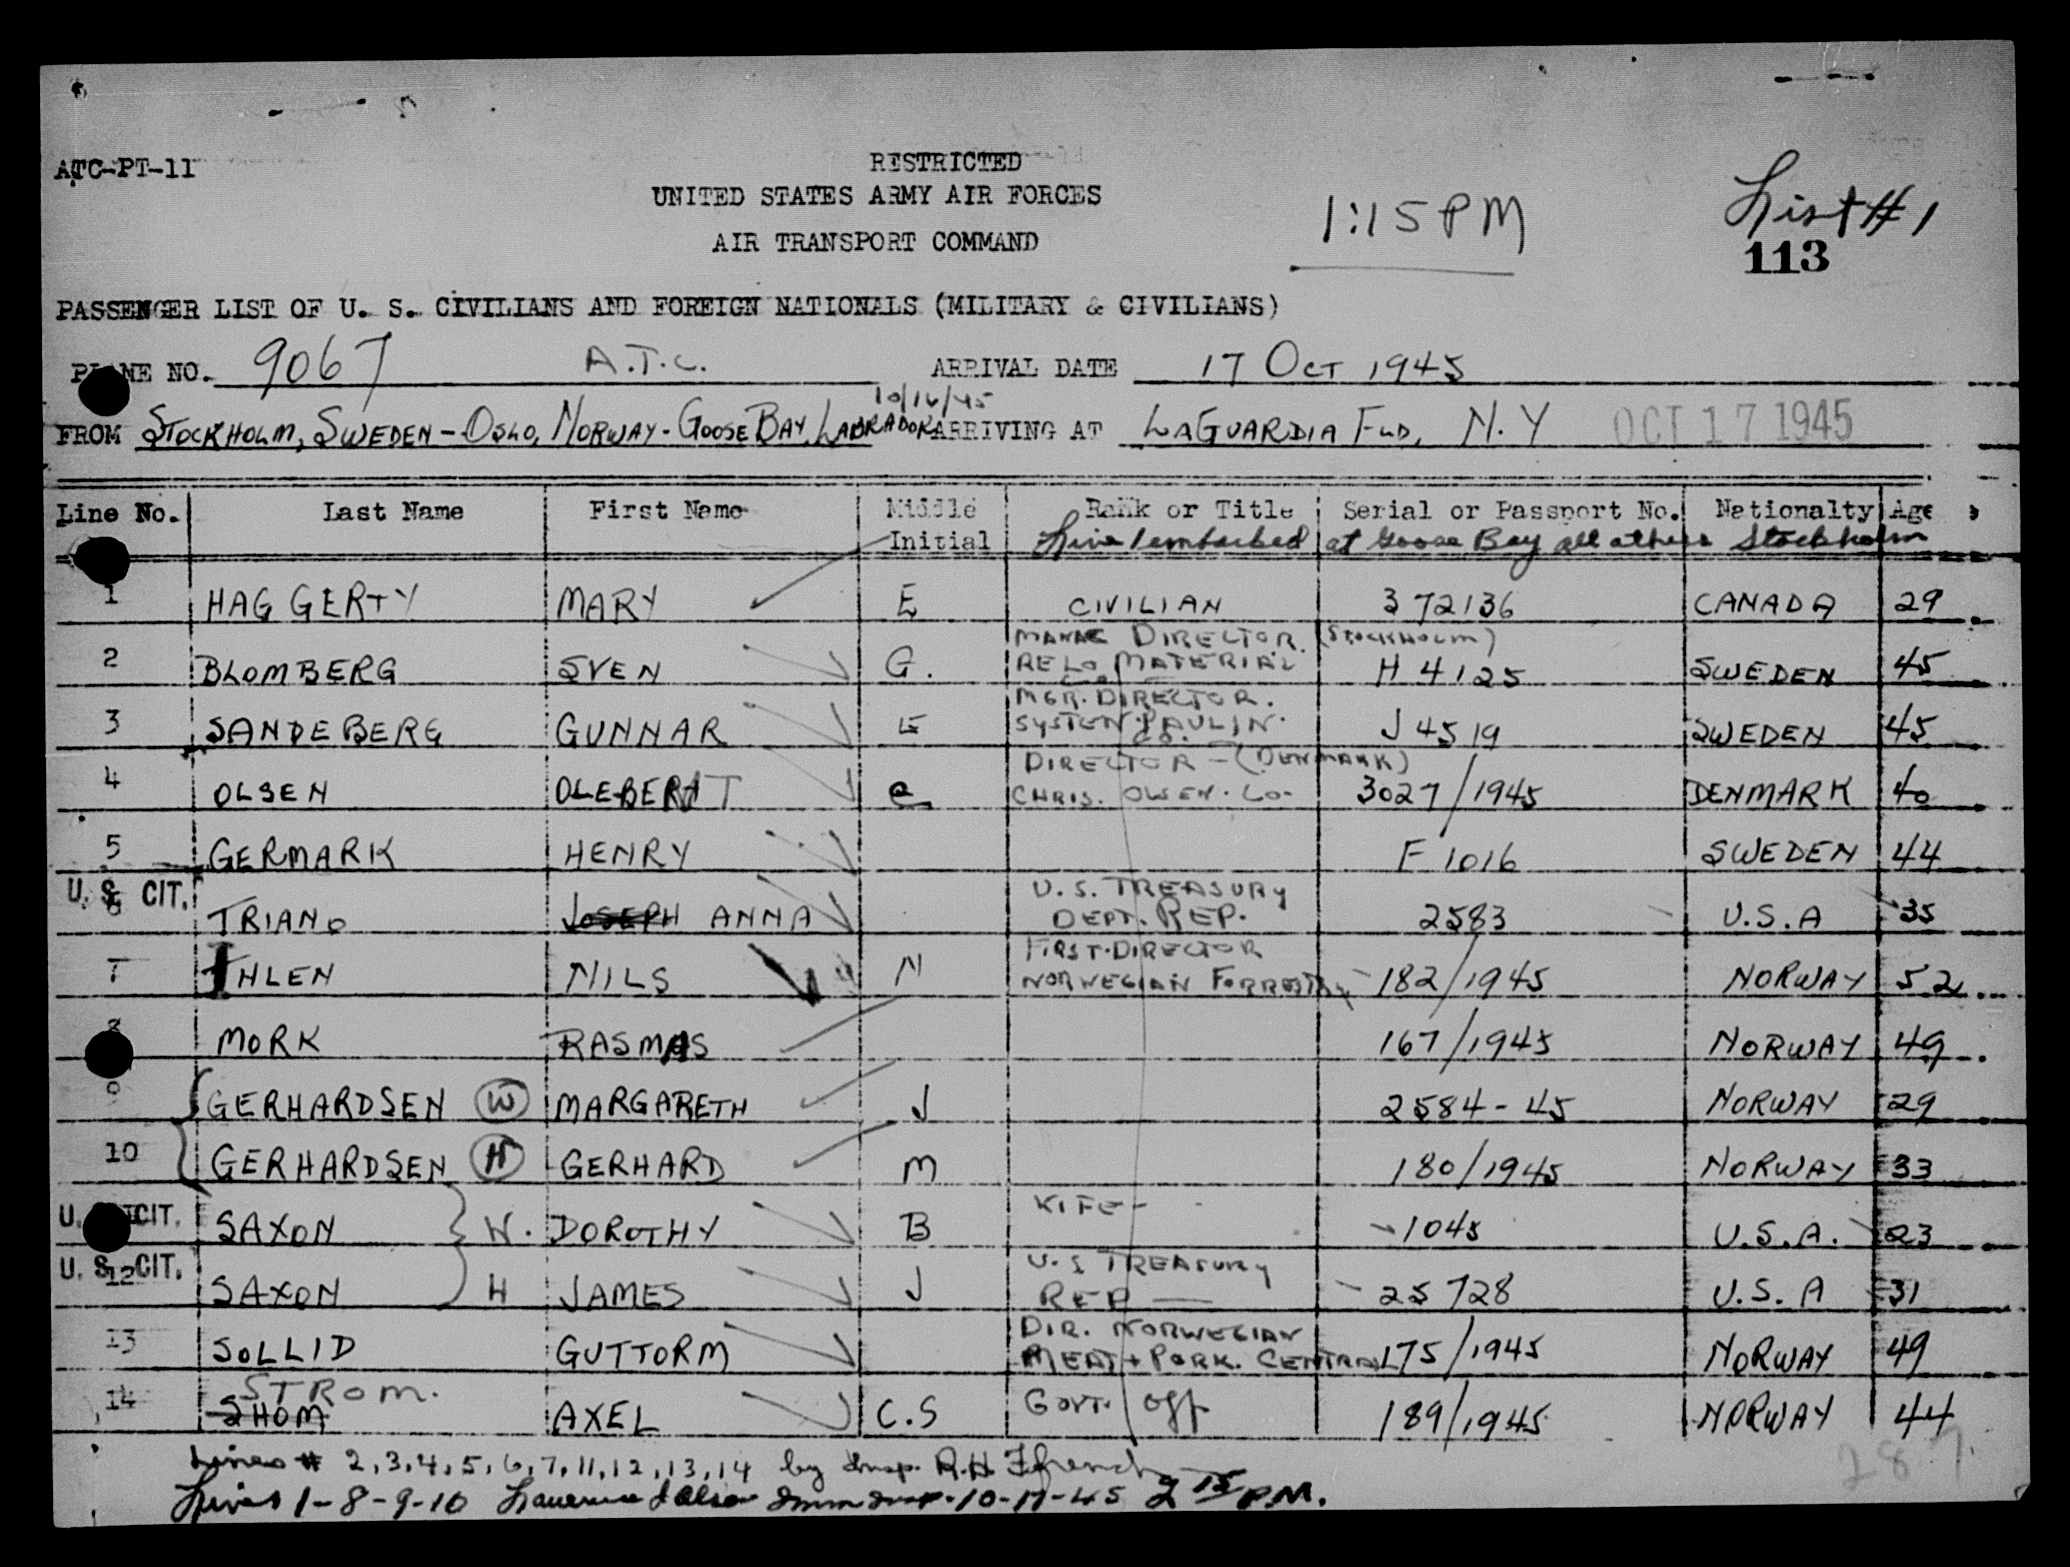 ATC-PT-11
RESTRICTED
UNITED STATES ARMY AIR FORCES
AIR TRANSPORT COMMAND
1:15 PM
List # 1
113
PASSENGER LIST OF U. S. CIVILIANS AND FOREIGN NATIONALS (MILITARY & CIVILIANS)
PLANE NO. 9067 A.T.C. ARRIVAL DATE 17 OCT 1945
10/16/45
FROM STOCKHOLM, SWEDEN - OSLO, NORWAY - GOOSE BAY, LABRADOR ARRIVING AT LAGUARDIA FLD, N.Y OCT 17 1945
Line No. Last Name First Name Middle Initial Rank or Title Serial or Passport No. Nationalty Age
Line 1 embarked at Goose Bay all others Stockholm
1 HAGGERTY MARY E CIVILIAN 372136 CANADA 29
MANAG DIRECTOR (STOCKHOLM)
2 BLOMBERG SVEN G. MATERIAL CO H 4125 SWEDEN 45
MGR. DIRECTOR.
3 SANDEBERG GUNNAR E SYSTEM PAULIN CO. J 4519 SWEDEN 45
DIRECTOR - (DENMARK)
4 OLSEN OLEBERNT e CHRIS. OLSEN. CO. 3027/1945 DENMARK 40
5 GERMARK HENRY F 1016 SWEDEN 44
U. S. CIT. U.S. TREASURY
6 TRIANO JOSEPH ANNA DEPT. REP. 2583 U.S.A 35
FIRST. DIRECTOR
7 IHLEN NILS N NORWEGIAN FORRESTRY 182/1945 NORWAY 52
8 MORK RASMAS 167/1945 NORWAY 49
9 GERHARDSEN W MARGARETH J 2584-45 NORWAY 29
10 GERHARDSEN H GERHARD M 180/1945 NORWAY 33
U. CIT. SAXON W. DOROTHY B 1045 U.S.A. 23
U. S. CIT. U.S TREASURY
12 SAXON H JAMES J REP 25728 U.S.A 31
DIR. NORWEGIAN
13 SOLLID GUTTORM MEAT + PORK. CENTRAL 175/1945 NORWAY 49
STROM.
14 SHOM AXEL C.S GOVT. Off 189/1945 NORWAY 44
287
Lines # 2,3,4,5,6,7,11,12,13,14 by Insp. R.H.
Lines 1-8-9-10 Imm Insp. 10-17-45 2 15 P.M.